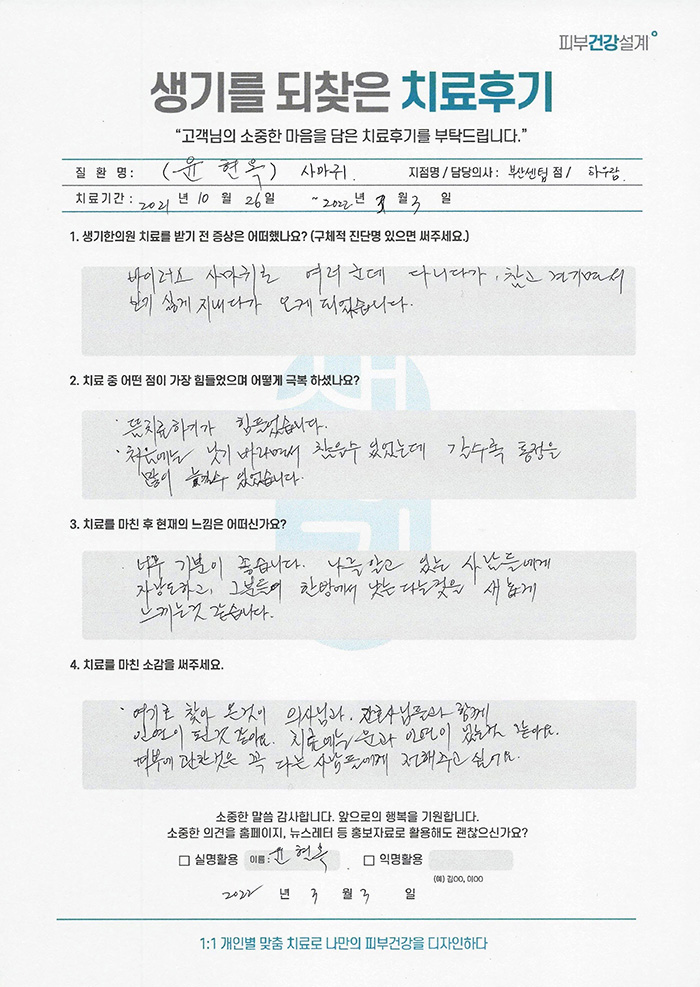 피부건강설계
생기를 되찾은 치료후기
“고객님의 소중한 마음을 담은 치료후기를 부탁드립니다.”
질 환 명 : (윤 현 옥) 사마귀. 지점명 / 담당의사 : 부산센텀 점 / 하우람
치료기간 : 2021 년 10 월 26 일 ~ 2022 년 3 월 3 일
1. 생기한의원 치료를 받기 전 증상은 어떠했나요? (구체적 진단명 있으면 써주세요.)
바이러스 사마귀로 여러 군데 다니다가, 참고 견기면서
보기 싫게 지내다가 오게 되었습니다.
2. 치료 중 어떤 점이 가장 힘들었으며 어떻게 극복 하셨나요?
· 뜸치료하기가 힘들었습니다.
· 처음에는 낫기 바라면서 참을수 있었는데 갈수록 통증을
많이 느낄수 있었습니다.
3. 치료를 마친 후 현재의 느낌은 어떠신가요?
너무 기분이 좋습니다. 나를 알고 있는 사람들에게
자랑도하고, 그분들이 한방에서 낫는다는것을 새롭게
느끼는것 같습니다.
4. 치료를 마친 소감을 써주세요.
· 여기로 찾아 온것이 의사님과, 간호사님들과 함께
인연이 된것 같아요. 치료에는 운과 인연이 있는거 같아요.
피부에 관한것은 꼭 다른 사람들에게 전해주고 싶어요.
소중한 말씀 감사합니다. 앞으로의 행복을 기원합니다.
소중한 의견을 홈페이지, 뉴스레터 등 홍보자료로 활용해도 괜찮으신가요?
□ 실명활용 이름 : 윤 현옥 □ 익명활용
(예) 김OO, 이OO
2022 년 3 월 3 일
1:1 개인별 맞춤 치료로 나만의 피부건강을 디자인하다